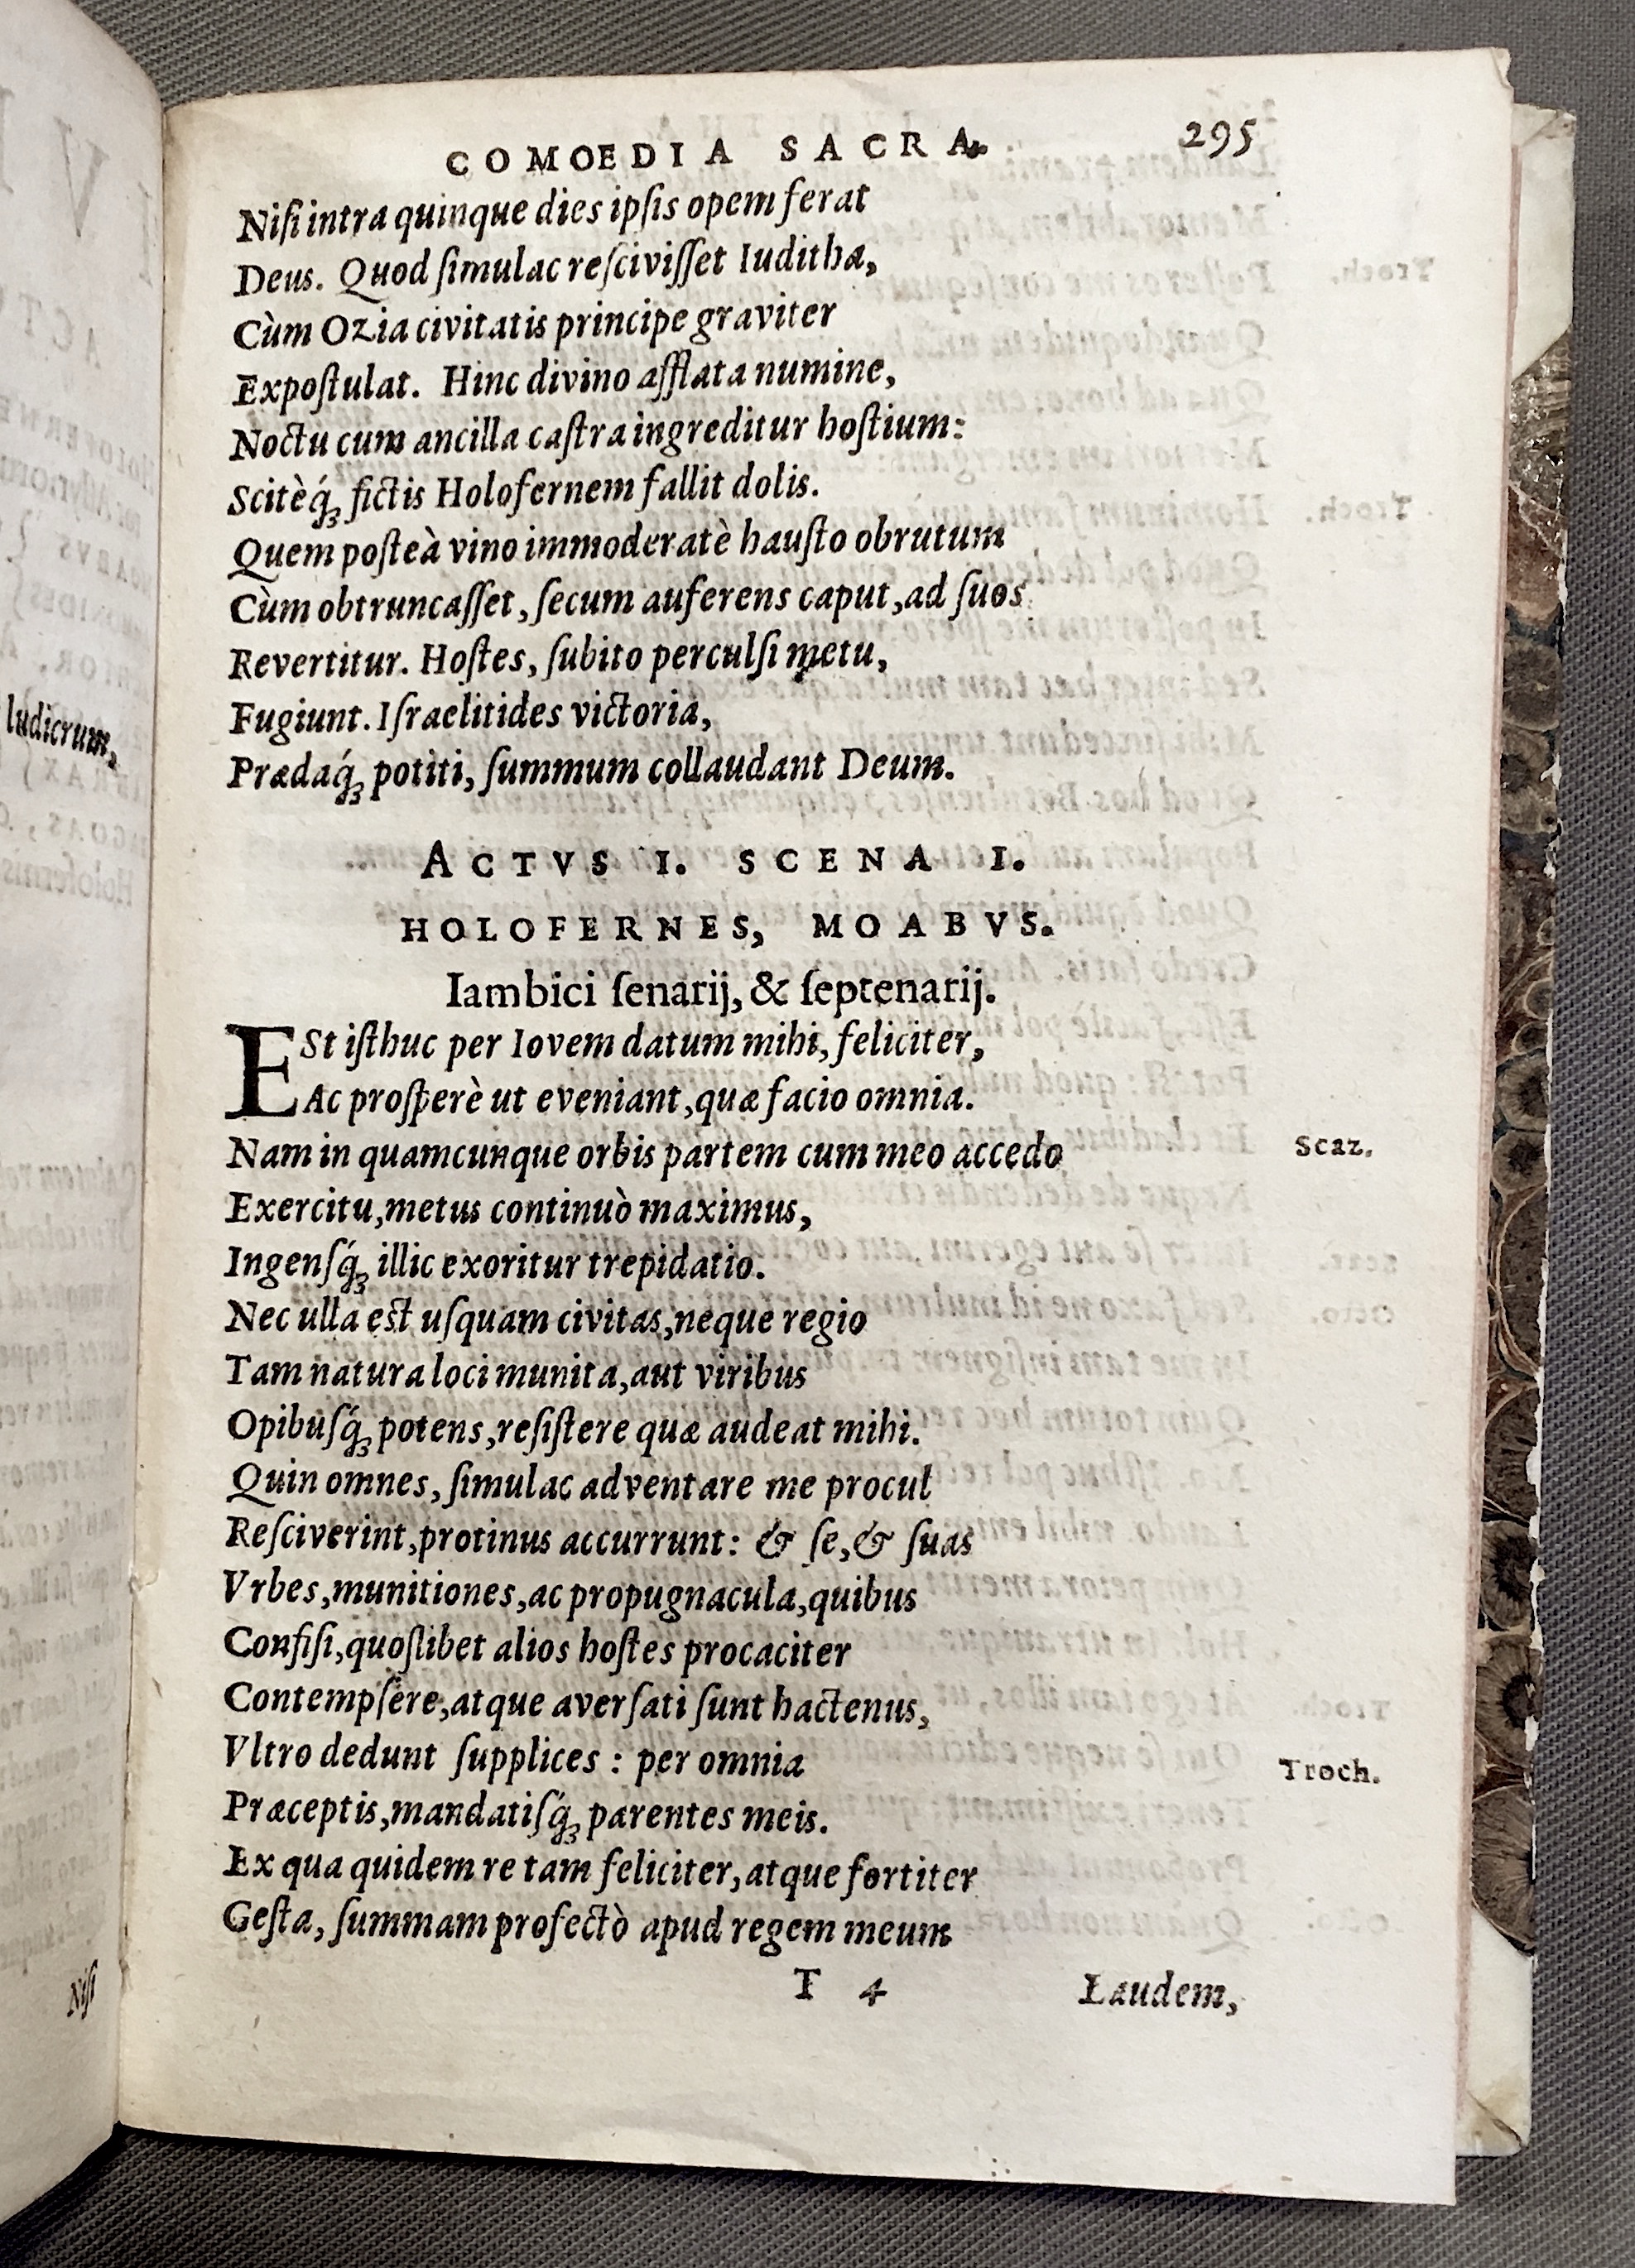 COMOEDIA SACRA. 295
Niſi intra quinque dies ipſis opem ferat
Deus. Quod ſimulac reſciviſſet Iuditha,
Cùm Ozia civitatis principe graviter
Expoſtulat. Hinc divino afflata numine,
Noctu cum ancilla caſtra ingreditur hoſtium:
Scitèq́ꝫ fictis Holofernem fallit dolis.
Quem poſteà vino immoderatè hauſto obrutum
Cùm obtruncaſſet, ſecum auferens caput, ad ſuos
Revertitur. Hoſtes, ſubito perculſi metu,
Fugiunt. Iſraelitides victoria,
Prædaq́ꝫ potiti, ſummum collaudant Deum.
ACTVS I. SCENA I.
HOLOFERNES, MOABVS.
Iambici ſenarij, & ſeptenarij.
ESt iſthuc per Iovem datum mihi, feliciter,
Ac proſperè ut eveniant, quæ facio omnia.
Nam in quamcunque orbis partem cum meo accedo Scaz.
Exercitu, metus continuò maximus,
Ingenſq́ꝫ illic exoritur trepidatio.
Nec ulla eſt uſquam civitas, neque regio
Tam natura loci munita, aut viribus
Opibuſq́ꝫ potens, reſiſtere quæ audeat mihi.
Quin omnes, ſimulac adventare me procul
Reſciverint, protinus accurrunt: & ſe, & ſuas
Vrbes, munitiones, ac propugnacula, quibus
Confiſi, quoſlibet alios hoſtes procaciter
Contempſêre, atque averſati ſunt hactenus,
Vltro dedunt ſupplices: per omnia Troch.
Præceptis, mandatiſq́ꝫ parentes meis.
Ex qua quidem re tam feliciter, atque fortiter
Geſta, ſummam profectò apud regem meum
T 4 Laudem,
ludicrum,
Niſi